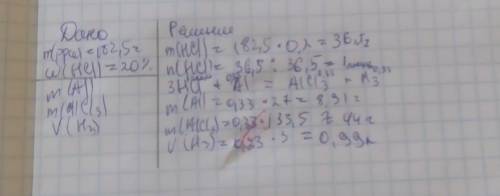 Дано
m(рра)=182,5г
ω(HCl)=20%
m(Al)
m(AlCl3)
V(H2)
Решение
m(HCl)=182,5·0,2=36,5г
n(HCl)=36,5:36,5=1
3HCl + Al = AlCl3 + H3
m(Al)=0,33·27=8,91г
m(AlCl3)=0,33·133,5=44г
V(H2)=0,33·3=0,99л